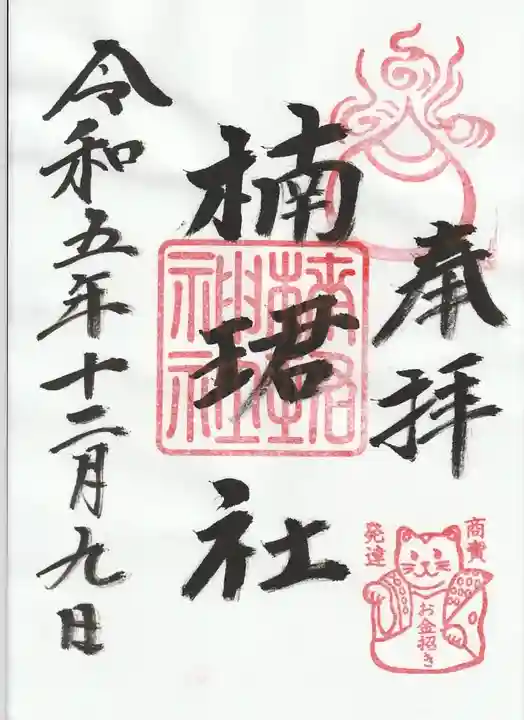 奉拝
楠珺社
令和五年十二月九日
商賣
発達
お金招き